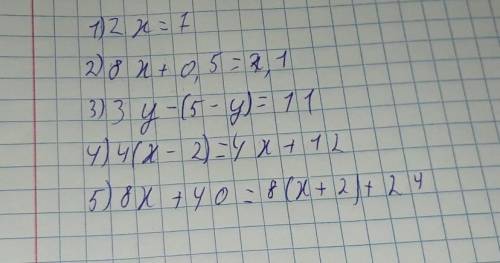 1) 2x = 7
2) 8x + 0,5 = 2,1
3) 3y - (5 - y) = 11
4) 4(x - 2) = 4x + 12
5) 8x + 40 = 8(x + 2) + 24